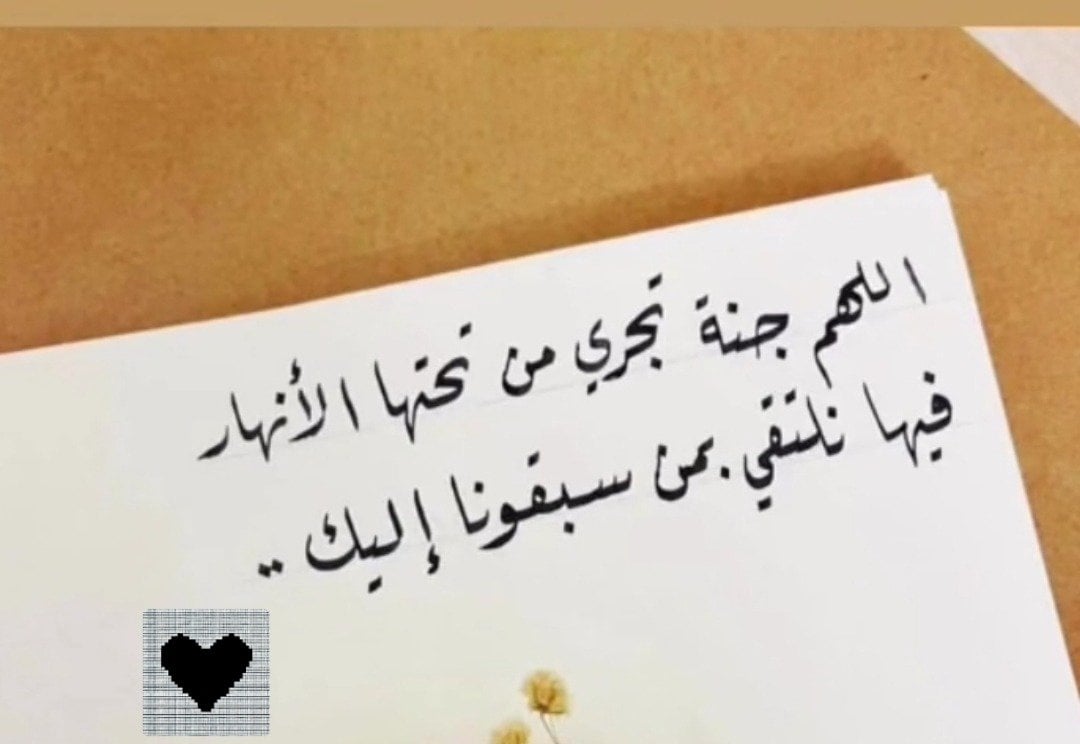 اللهم جنة تجري من تحتها الأنهار
فيها نلتقي بمن سبقونا إليك ..